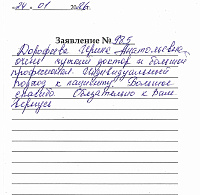 24 . 01 . 2016.
Заявление № 985
Дорофеева Ирина Анатольевна
очень чуткий доктор и большой
профессионал. Индивидуальный
подход к пациенту. Большое
спасибо. Обязательно к Вам
вернусь